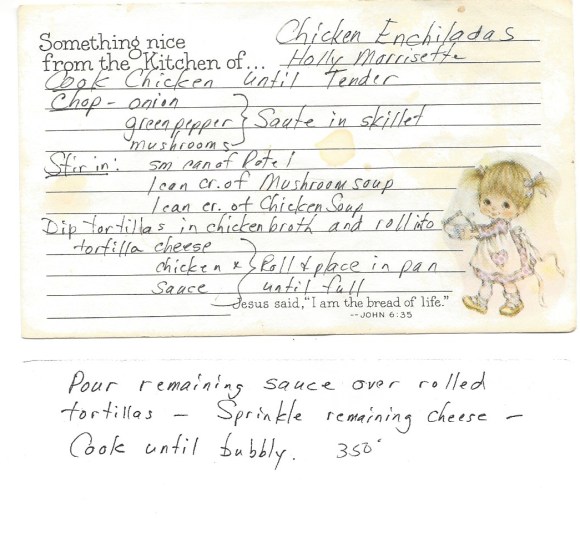 Something nice
from the Kitchen of... Chicken Enchiladas
Holly Morrisette
Cook Chicken until Tender
Chop - onion
green pepper
mushrooms
Saute in skillet
Stir in: sm can of Rotel
1 can cr. of Mushroom soup
1 can cr. of Chicken Soup
Dip tortillas in chicken broth and roll into
tortilla cheese
chicken &
sauce
Roll & place in pan
until full
Jesus said, "I am the bread of life."
--JOHN 6:35
Pour remaining sauce over rolled
tortillas – Sprinkle remaining cheese –
Cook until bubbly. 350°